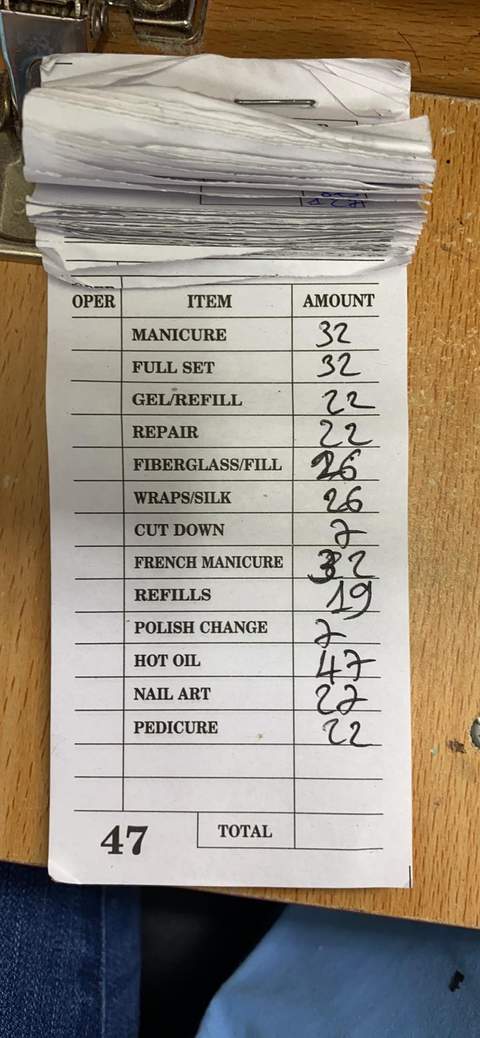 OPER ITEM AMOUNT
MANICURE 32
FULL SET 32
GEL/REFILL 22
REPAIR 22
FIBERGLASS/FILL 26
WRAPS/SILK 26
CUT DOWN 7
FRENCH MANICURE 32
REFILLS 19
POLISH CHANGE 7
HOT OIL 47
NAIL ART 27
PEDICURE 22
47 TOTAL